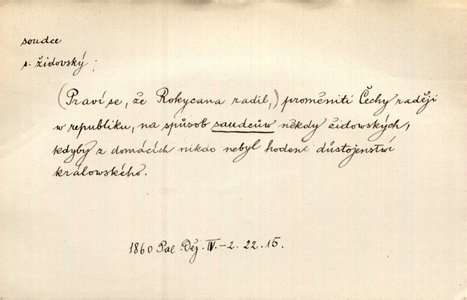 soudce
s. židovský;
(Praví se, že Rokycana radil,) proměniti Čechy raději
w republiku, na spůsob saudcůw někdy židowských,
kdyby z domácích nikdo nebyl hoden důstojenstwí
králowského.
1860 Pal Děj. IV.-2. 22.15.